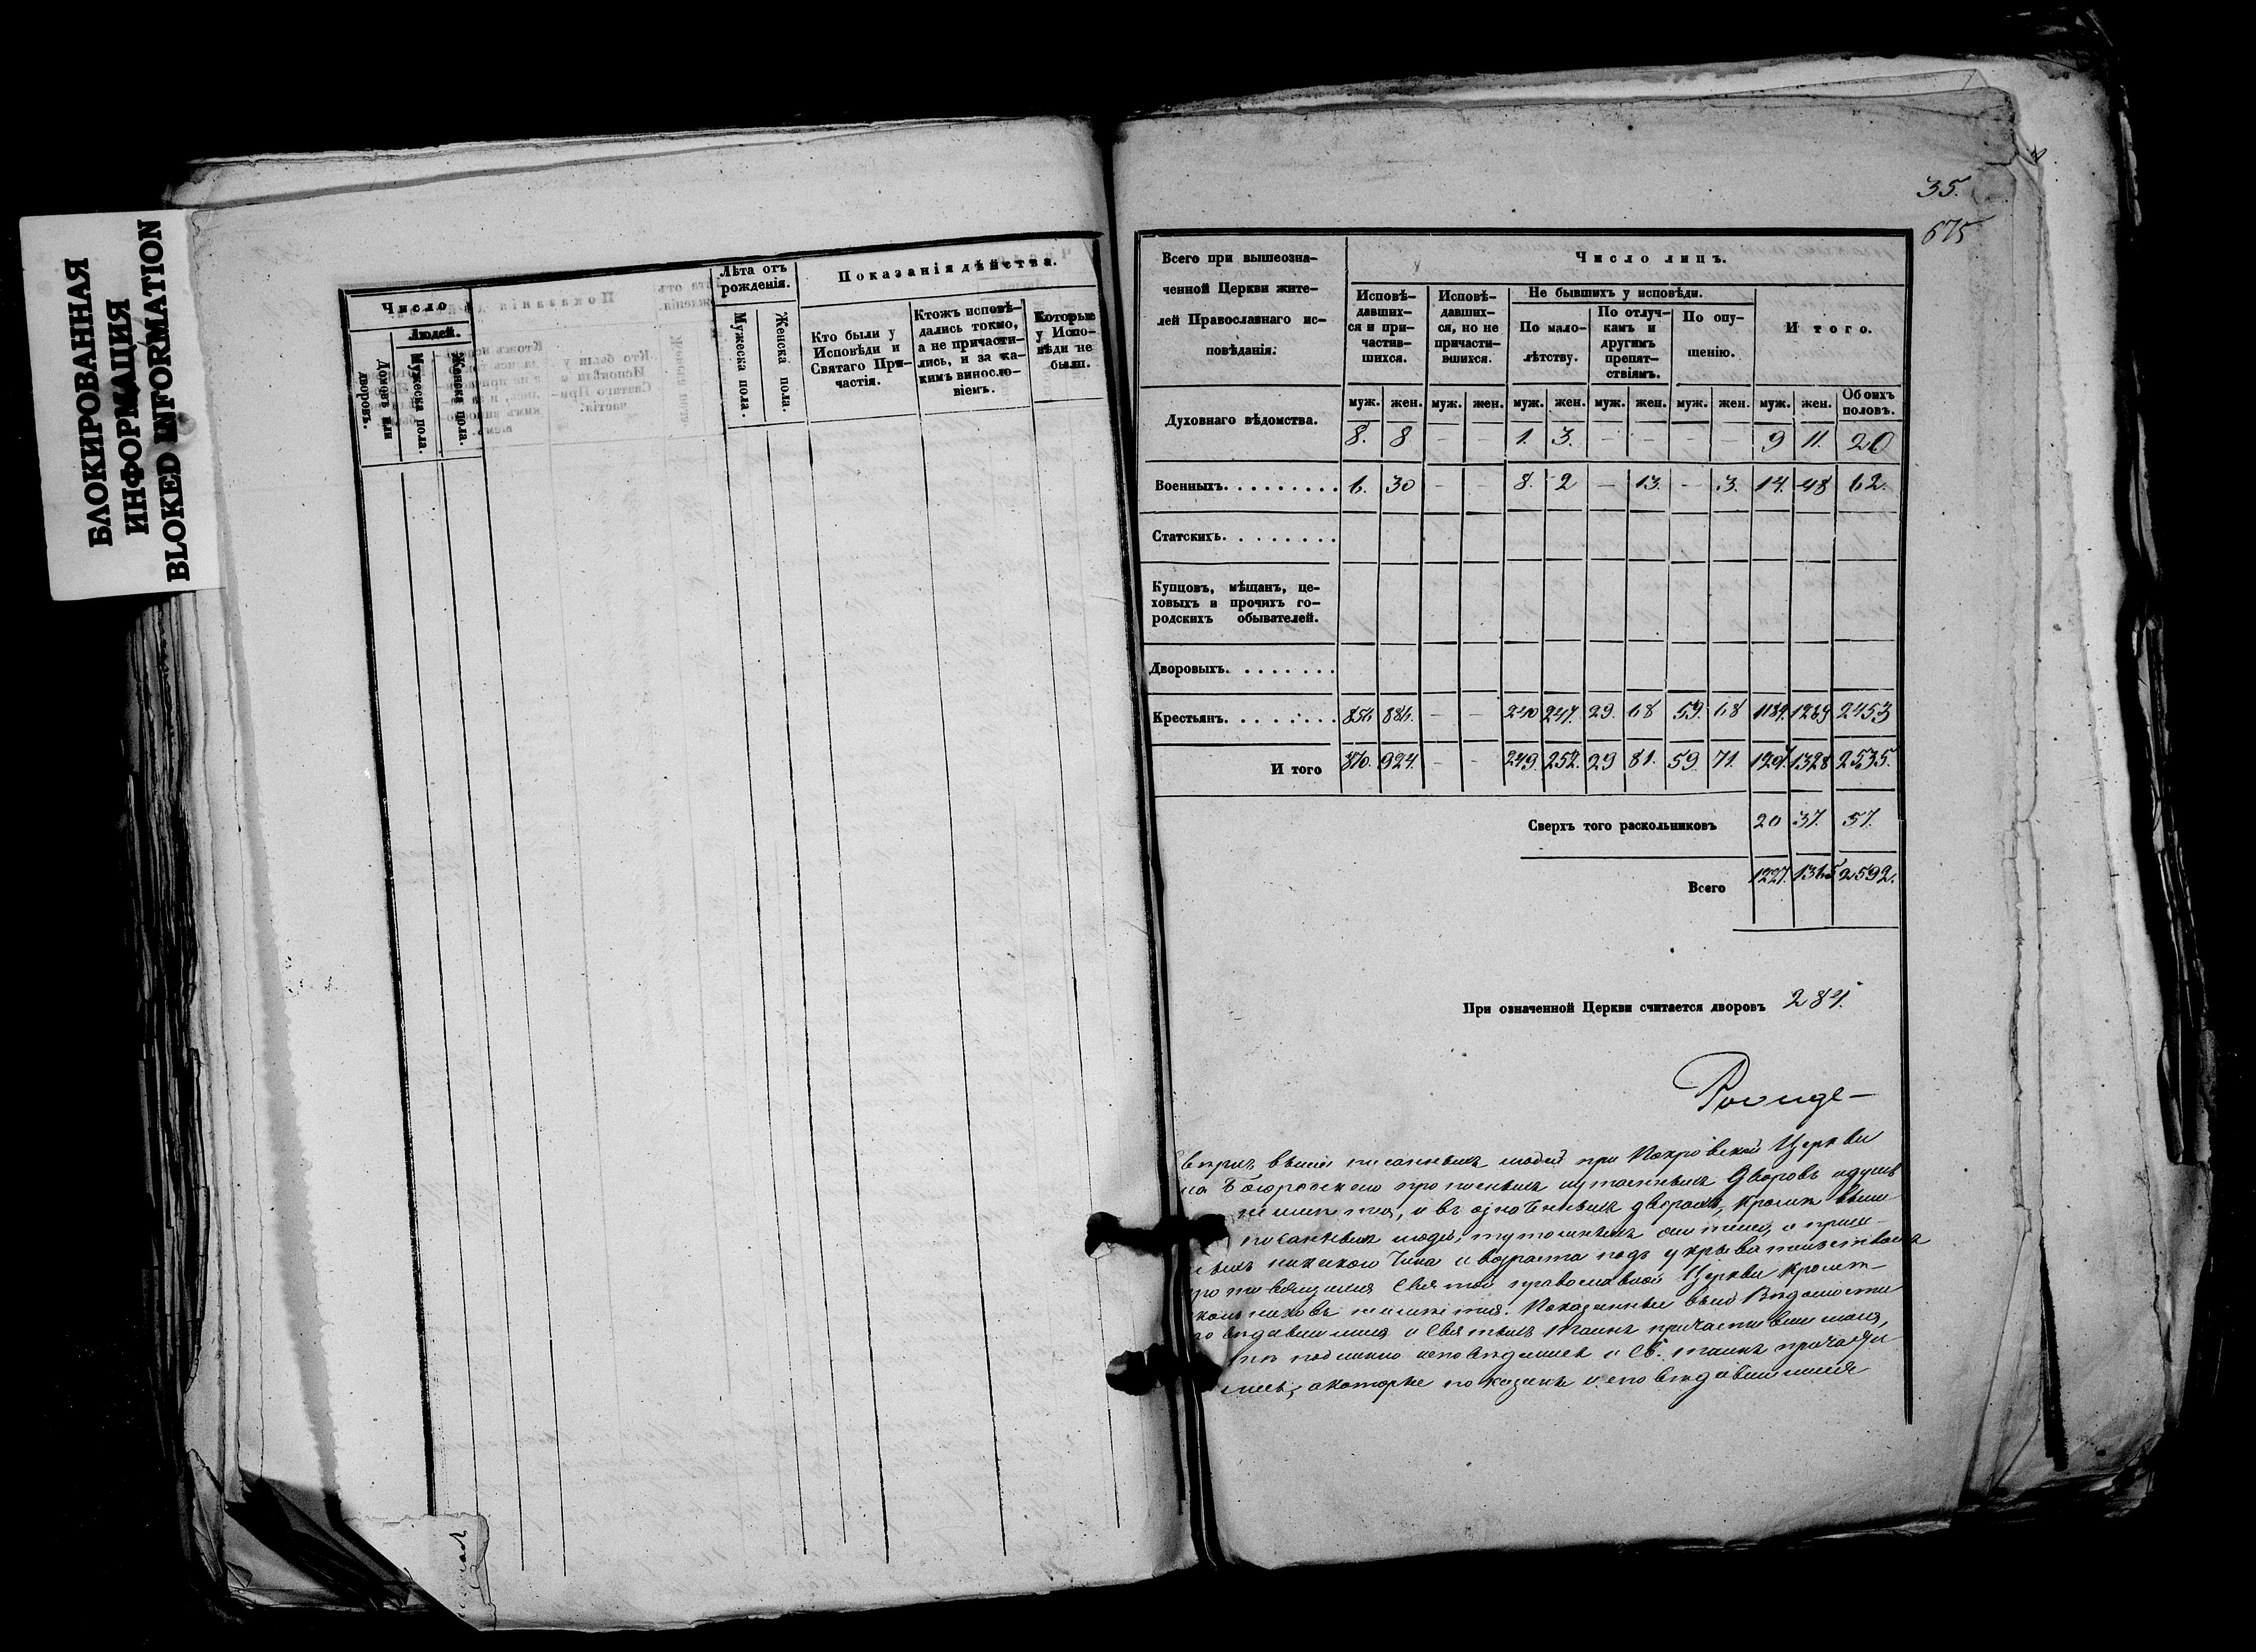 БЛОКИРОВАННАЯ
ИНФОРМАЦИЯ
BLOKED INFORMATION
Число
Людей.
Домовъ или дворовъ.
Мужеска пола.
Женска пола.
Лѣта отъ рожденія.
Мужеска пола.
Женска пола.
Показанія дѣйства.
Кто были у Исповѣди и Святаго При-частія.
Ктожъ исповѣ-дались токмо, а не причасти-лись, и за ка-кимъ винослo-віемъ.
Которые у Испо-вѣди не были.
35.
675
Всего при вышеозна-
ченной Церкви жите-
лей Православнаго ис-
повѣданія:
Число лицъ.
Исповѣ-давших-ся и при-частив-шихся.
Исповѣ-давших-ся, но не причасти-вшихся.
Не бывшихъ у исповѣди.
По мало-лѣтству.
По отлуч-камъ и другимъ препят-ствіямъ.
По опу-щенію.
И того.
муж. жен. муж. жен. муж. жен. муж. жен. муж. жен. муж. жен. Обоихъ половъ.
Духовнаго вѣдомства. 8. 8 - - 1. 3. - - - - 9 11. 20
Военныхъ. 6. 30 - - 8. 2 - 13. - 3. 14. 48 62.
Статскихъ.
Купцовъ, мѣщанъ, це-
ховыхъ и прочихъ го-
родскихъ обывателей.
Дворовыхъ.
Крестьянъ. 856 886. - - 240 247. 29. 68 59. 68 1184. 1269 2453
И того 870. 924. - - 249. 252. 29 81. 59. 71. 1207. 1328 2535.
Сверхъ того раскольниковъ 20 37. 57.
Всего 1227. 1365 2592.
При означенной Церкви считается дворовъ
вышеписанныхъ людей при Покровской Церкви
дворовъ
и въ означенныхъ дворахъ, кромѣ выше
писанныхъ людей,
никакого чина и возраста подъ укрывательствомъ
Святой православной Церкви кромѣ
Показанные
и Святыхъ Таинъ причастившимися,
исповѣдались и Св. таинъ причасти
лись, а которые показаны исповѣдавшимися